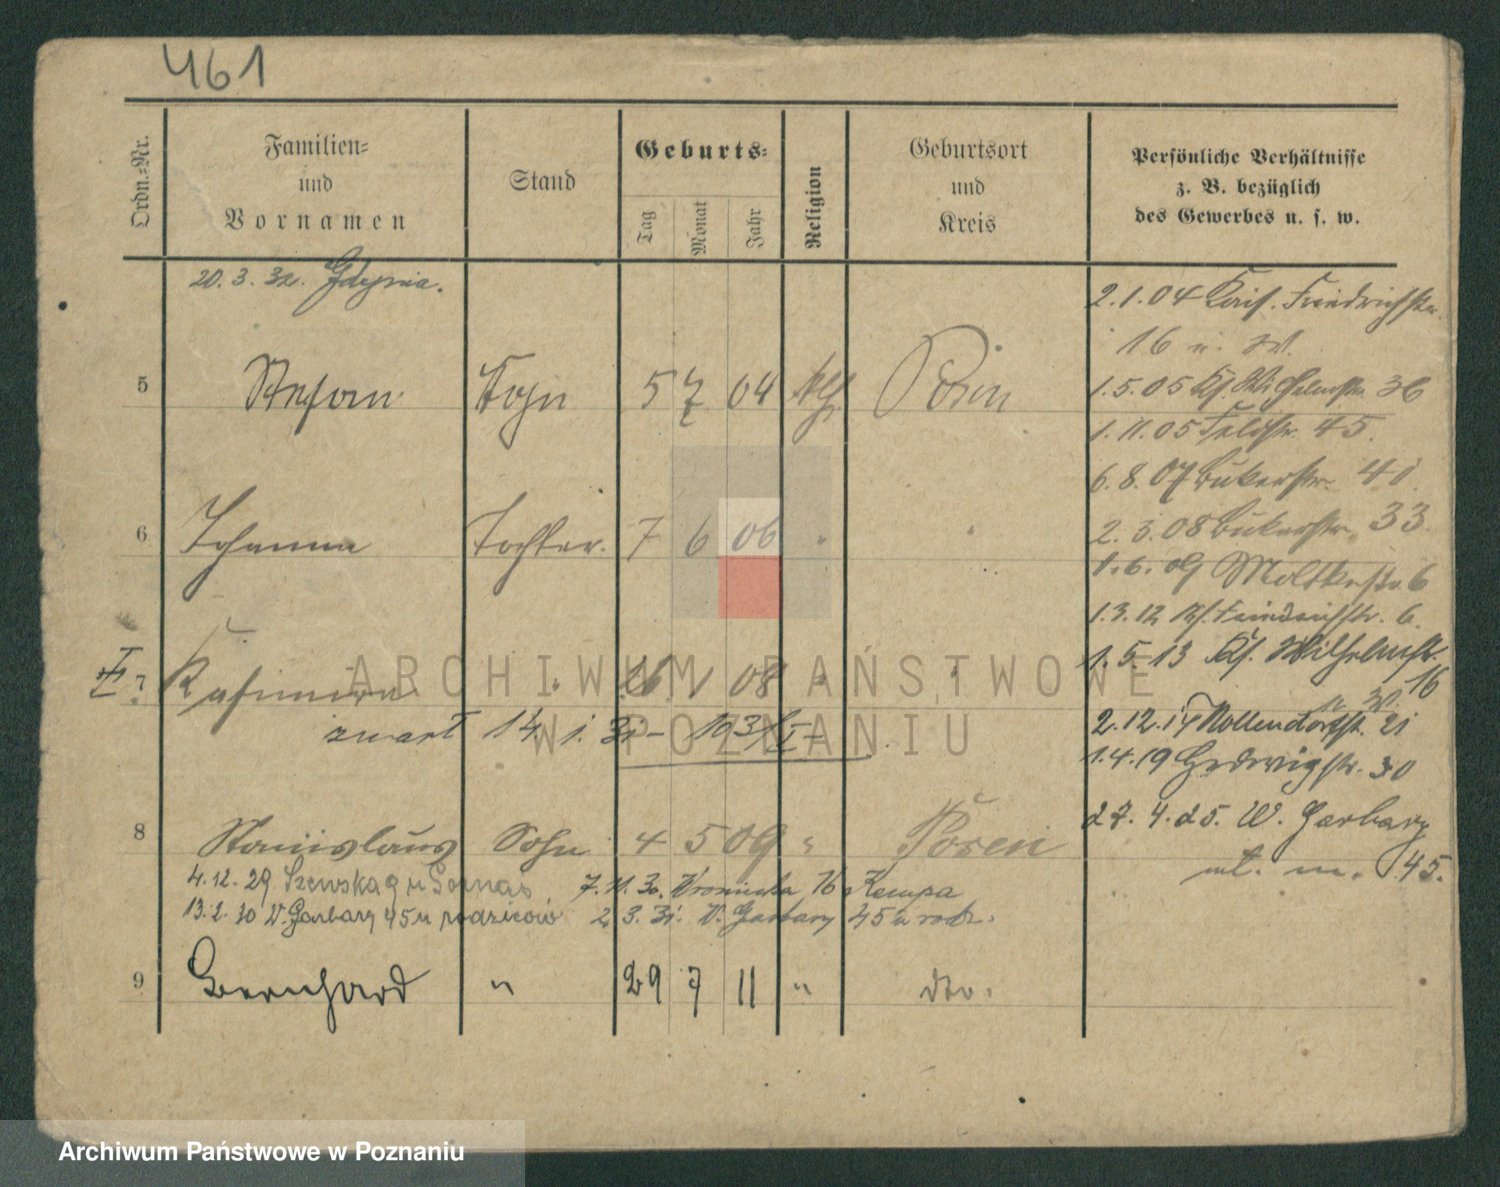 461
Ordn.-Nr.
Familien-
und
Vornamen
Stand
Geburts-
Tag
Monat
Jahr
Religion
Geburtsort
und
Kreis
Persönliche Verhältnisse
z. B. bezüglich
des Gewerbes u. s. w.
20. 3. 32. Gdynia.
2.1.04 Kais. Friedrichstr.
16 u. W.
5 Stefan Sohn 5 7 04 kth Posen
1.5.05 Ks. Wilhelmstr. 36
1.11.05 Feldstr. 45.
6.8.07 Bukerstr. 41
6 Johanna Tochter. 7 6 06 "
2.3.08 Bukerstr. 33.
1.6.09 Moltkestr. 6
1.3.12 Ks. Friedrichstr. 6.
1.5.13 Ks. Wilhelmstr.
16
u W.
7 Kasimira " 16 1 08 " "
2.12.17 Nollendorfstr. 21
14. 1. 31
1.4.19 Hedwigstr. 30
27. 4. 25. W. Garbary
m. 45.
8 Stanislaus Sohn 4 5 09 " Posen
4.12.29 Szewska 9 u
7.11.30. Wroniecka 16 Kempa
13.2.30 W. Garbary 45 u rodziców
2.3.31. W. Garbary 45 u rodz.
9 Bernhard " 29 7 11 " dto.
ARCHIWUM PAŃSTWOWE
W POZNANIU
Archiwum Państwowe w Poznaniu